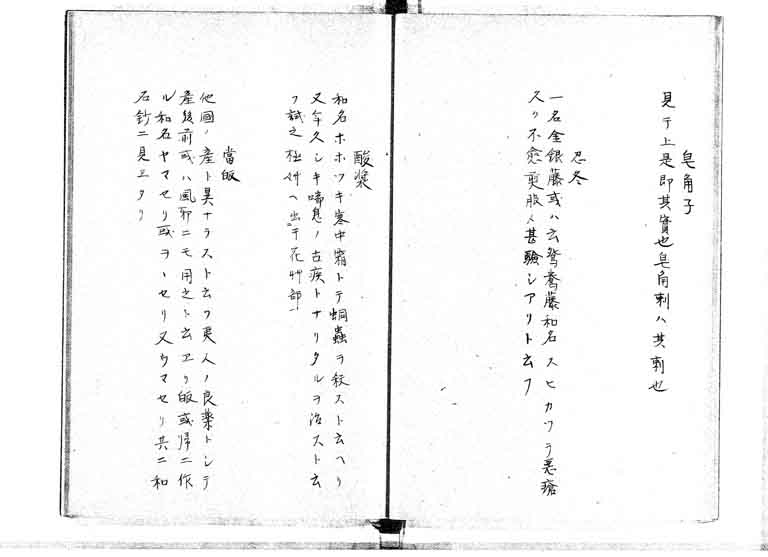 皂角子
見于上是即其實也皂角刺ハ其刺也
忍冬
一名金銀藤或ハ云鴛鴦藤和名スヒカツラ悪瘡
久ク不愈更服メ甚驗シアリト云フ
酸漿
和名ホホツキ寒中霜トテ蛔蟲ヲ殺スト云ヘリ
又年久シキ喘息ノ古疾トナリタルヲ治スト云
フ試之 出于花艸部
當皈
他國ノ産ト異ナラスト云フ夷人ノ良薬トシテ
産後前或ハ風邪ニモ用之ト云ヱリ皈或帰ニ作
ル和名ヤマセリ或ヲヽセリ又ウマセリ共ニ和
名鈔ニ見ヱタリ